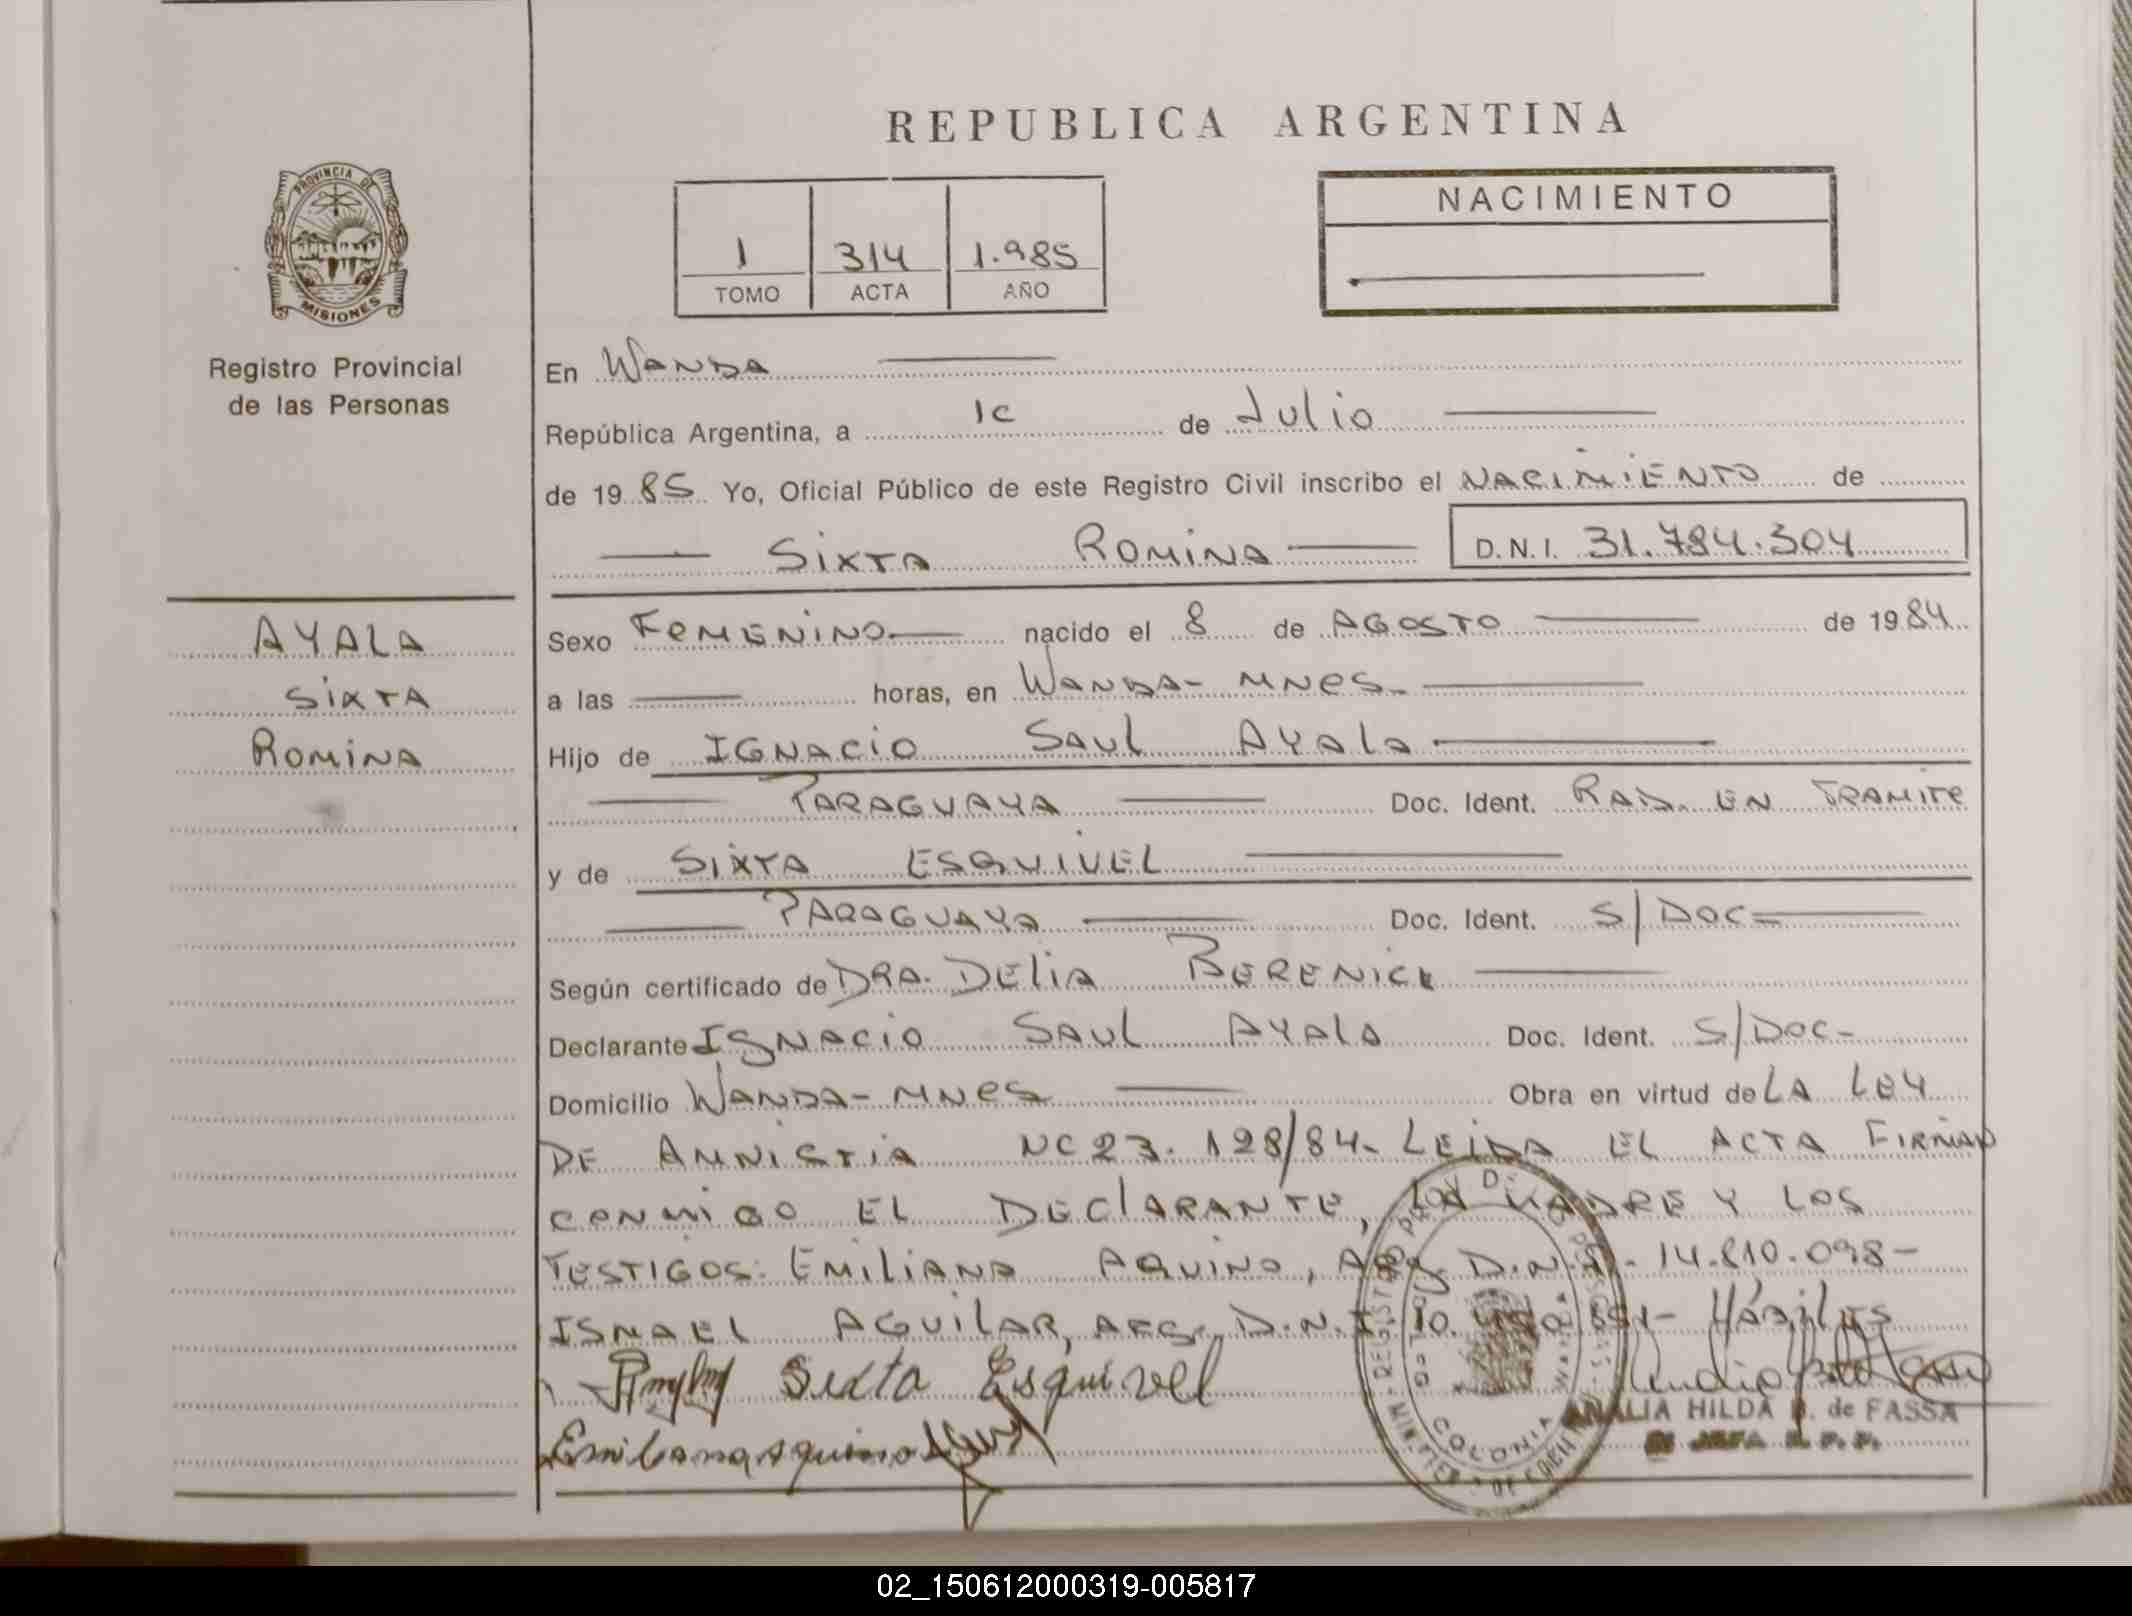 REPUBLICA ARGENTINA
PROVINCIA DE
MISIONES
Registro Provincial
de las Personas
1 314 1.985
TOMO ACTA AÑO
NACIMIENTO
En WANDA
República Argentina, a 1c de Julio
de 1985 Yo, Oficial Público de este Registro Civil inscribo el NACIMIENTO de
SIXTA ROMINA D.N.I. 31.784.304
AYALA
SIXTA
ROMINA
Sexo FEMENINO nacido el 8 de AGOSTO de 1984
a las horas, en WANDA- MNES-
Hijo de IGNACIO SAUL AYALA
PARAGUAYA Doc. Ident. RAD. EN TRAMITE
y de SIXTA ESQUIVEL
PARAGUAYA Doc. Ident. S/DOC-
Según certificado de DRA. DELIA BERENICE
Declarante IGNACIO SAUL AYALA Doc. Ident. S/DOC-
Domicilio WANDA- MNES Obra en virtud de LA LEY
DE AMNISTIA NC 23.128/84- LEIDA EL ACTA FIRMAN
CONMIGO EL DECLARANTE, LA MADRE Y LOS
TESTIGOS: EMILIANA AQUINO, ARG. D.N.I. 14.810.098-
ISMAEL AGUILAR, ARG., D.N.I. 10. Hábiles
Sixta Esquivel
Emiliana Aquino
COLONIA WANDA
ANALIA HILDA de FASSA
JEFA R. P. P.
02_150612000319-005817